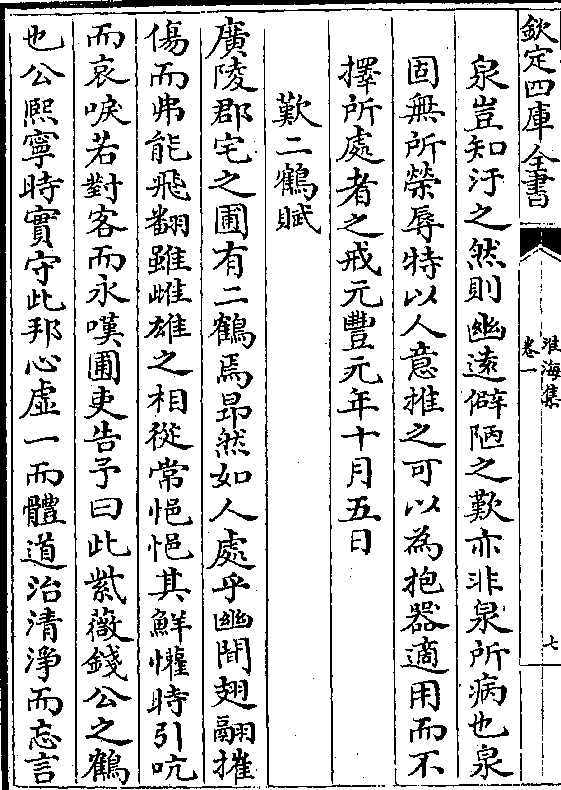 欽定四庫全書
淮海集
卷一
七
泉豈知汙之然則幽遠僻陋之歎亦非泉所病也泉
固無所榮辱特以人意推之可以為抱器適用而不
擇所處者之戒元豐元年十月五日
歎二鶴賦
廣陵郡宅之圃有二鶴焉昻然如人處乎幽閒翅翮摧
傷而弗能飛翻雖雌雄之相從常悒悒其鮮懽時引吭
而哀唳若對客而永嘆圃吏告予曰此紫薇錢公之鶴
也公熙寧時實守此邦心虛一而體道治清淨而忘言